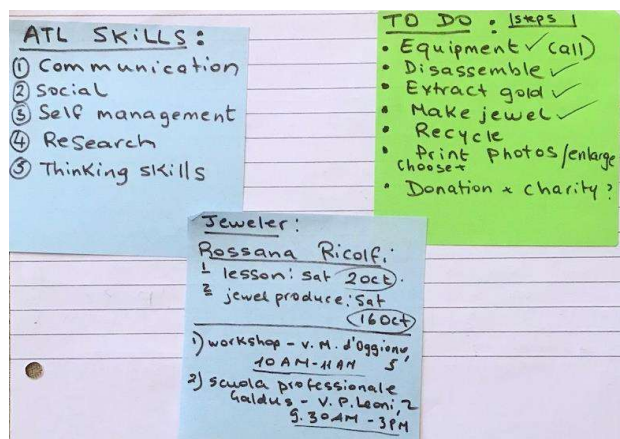 ATL SKILLS:
① Communication
② Social
③ Self management
④ Research
⑤ Thinking skills
TO DO: steps
• Equipment ✓ (call)
• Disassemble ✓
• Extract gold ✓
• Make jewel ✓
• Recycle
• Print photos/enlarge
choose+
• Donation x charity?
Jeweler:
Rossana Ricolfi:
1 lesson: sat 2 Oct.
2 jewel produce: Sat
16 Oct
1) workshop - V. M. d'Oggiono,
10 AM-11 AM 5
2) scuola professionale
Galdus - V. P. Leoni, 2
9.30 AM - 3 PM